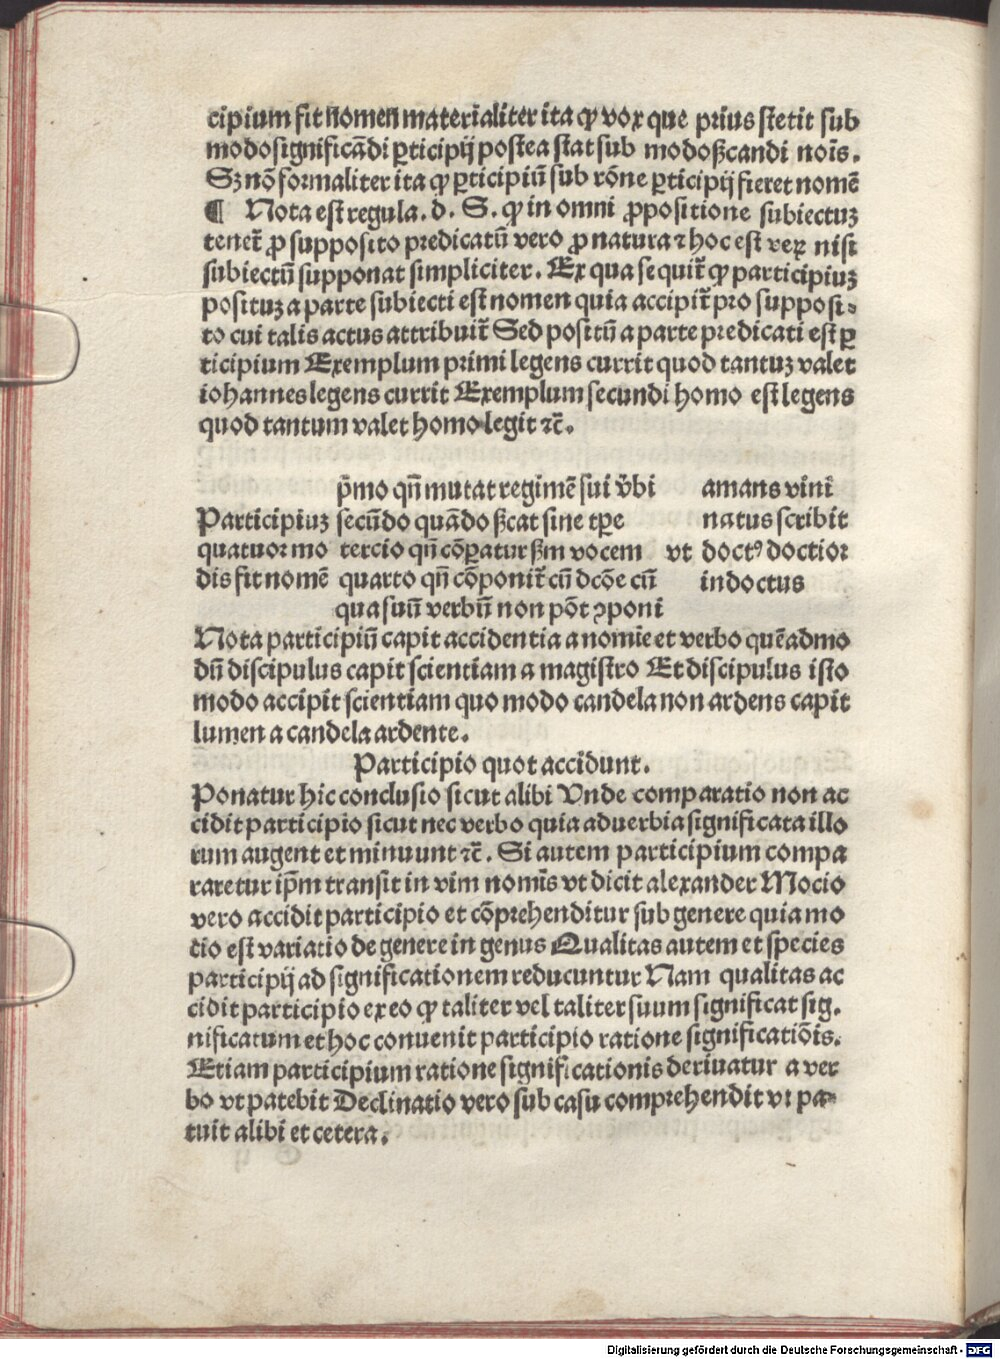 cipium fit nomen materialiter ita ꝙ vox que prius stetit sub
modo significãdi ꝑticipij postea stat sub modo ßcandi noĩs.
Sꝫ nõ formaliter ita ꝙ ꝑticipiũ sub rõne ꝑticipij fieret nomẽ
¶ Nota est regula. d. S. ꝙ in omni ꝓpositione subiectuꝫ
tenet̃ ꝓ supposito predicatũ vero ꝓ natura ⁊ hoc est veꝝ nisi
subiectũ supponat simpliciter. Ex qua sequit̃ ꝙ participiuꝫ
posituꝫ a parte subiecti est nomen quia accipit̃ pro supposi-
to cui talis actus attribuit̃ Sed positũ a parte predicati est ꝑ
ticipium Exemplum primi legens currit quod tantuꝫ valet
iohannes legens currit Exemplum secundi homo est legens
quod tantum valet homo legit ⁊c̃.
p̃mo qñ mutat regimẽ sui v̓bi amans vini
Participiuꝫ secũdo quãdo ßcat sine tp̃e natus scribit
quatuor mo tercio qñ cõꝑatur ßm vocem vt doctꝰ doctior
dis fit nomẽ quarto qñ cõponit̃ cũ dcõe cũ indoctus
qua suũ verbũ non põt ꝯponi
Nota participiũ capit accidentia a nomĩe et verbo quẽadmo
dũ discipulus capit scientiam a magistro Et discipulus isto
modo accipit scientiam quo modo candela non ardens capit
lumen a candela ardente.
Participio quot accidunt.
Ponatur hic conclusio sicut alibi Vnde comparatio non ac
cidit participio sicut nec verbo quia aduerbia significata illo
rum augent et minuunt ⁊c̃. Si autem participium compa
raretur ip̃m transit in vim nomĩs vt dicit alexander Mocio
vero accidit participio et cõprehenditur sub genere quia mo
tio est variatio de genere in genus Qualitas autem et species
participij ad significationem reducuntur Nam qualitas ac
cidit participio ex eo ꝙ taliter vel taliter suum significat sig.
nificatum et hoc conuenit participio ratione significatiõis.
Etiam participium ratione significationis deriuatur a ver
bo vt patebit Declinatio vero sub casu comprehendit vt pa-
tuit alibi et cetera.
Digitalisierung gefördert durch die Deutsche Forschungsgemeinschaft - DFG